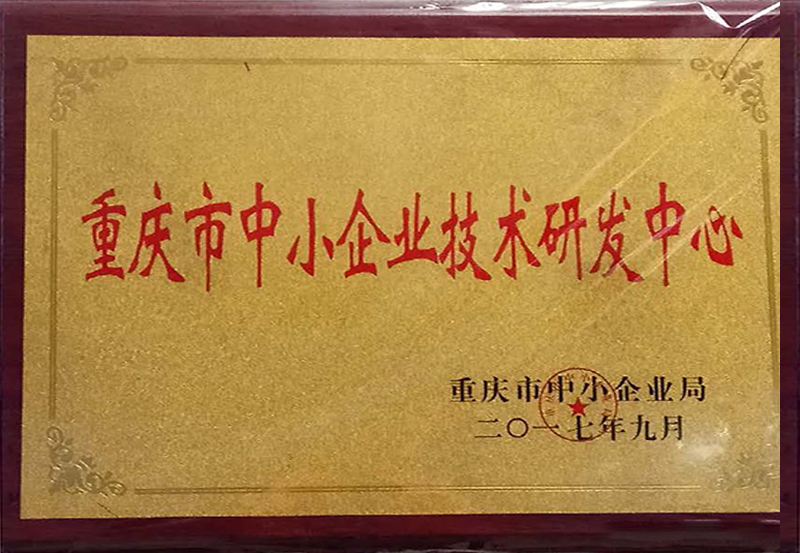 重庆市中小企业技术研发中心
重庆市中小企业局
二〇一七年九月